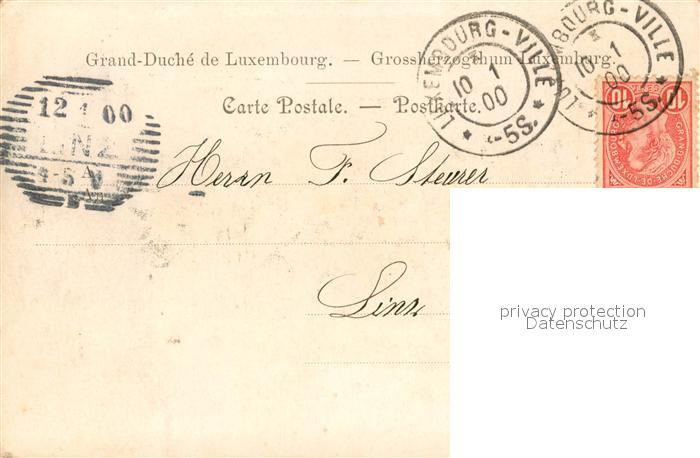 Grand-Duché de Luxembourg. — Grossherzogthum Luxemburg.
Carte Postale. — Postkarte.
LUXEMBOURG-VILLE
10 1
00
-5S.
BOURG-VILLE
10 1
00
-5S.
12 1 00
LINZ
10
GRAND DUCHÉ DE LUXEMBOURG
10
Herrn F. Steurer
Linz
privacy protection
Datenschutz